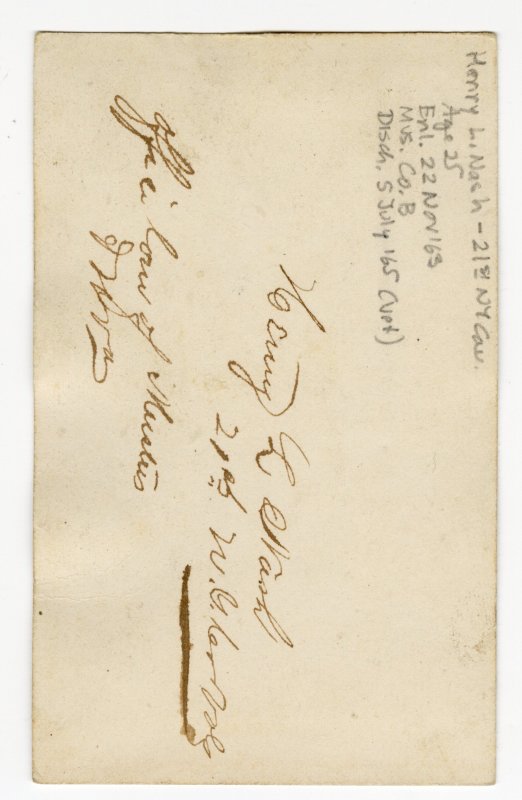 Henry L. Nash - 21st NY Cav.
Age 25
Enl. 22 Nov '63
Mus. Co. B
Disch. 5 July '65 (Vet)
Henry L Nash
21st N.Y. Cav Vols
Office Com of Musters
D W Va